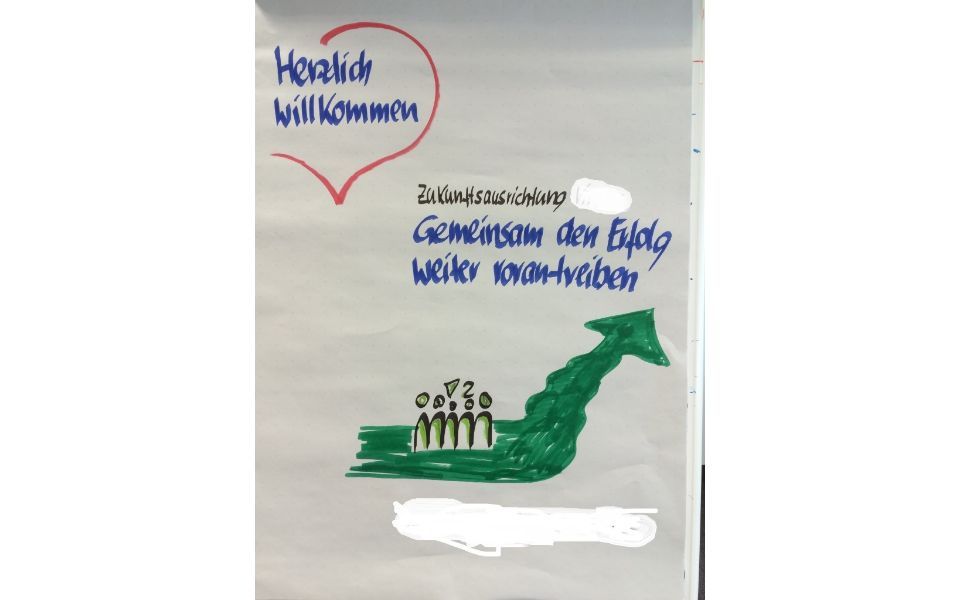 Herzlich
willkommen
Zukunftsausrichtung
Gemeinsam den Erfolg
weiter vorantreiben